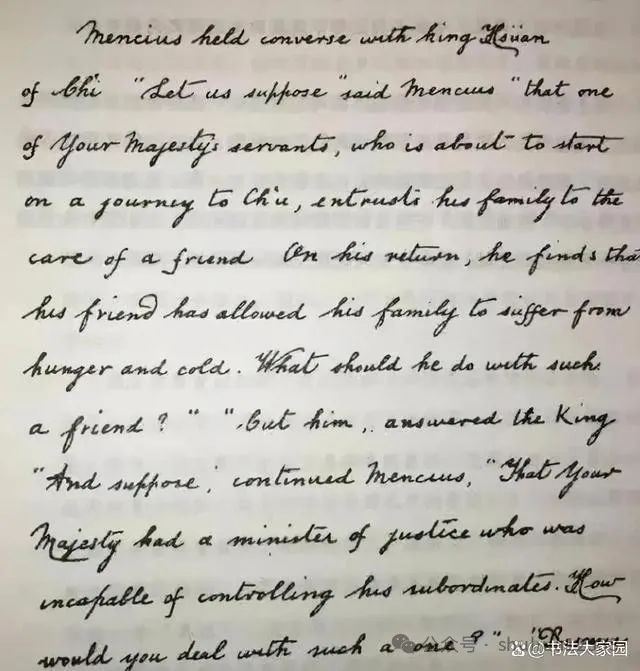 Mencius held converse with king Hsüan
of Ch'i "Let us suppose" said Mencius "that one
of Your Majesty's servants, who is about to start
on a journey to Ch'u, entrusts his family to the
care of a friend On his return, he finds that
his friend has allowed his family to suffer from
hunger and cold. What should he do with such
a friend?" "Cut him, answered the King
"And suppose', continued Mencius, "That Your
Majesty had a minister of justice who was
incapable of controlling his subordinates. How
would you deal with such a one?"
公众号 ·
书法大家园